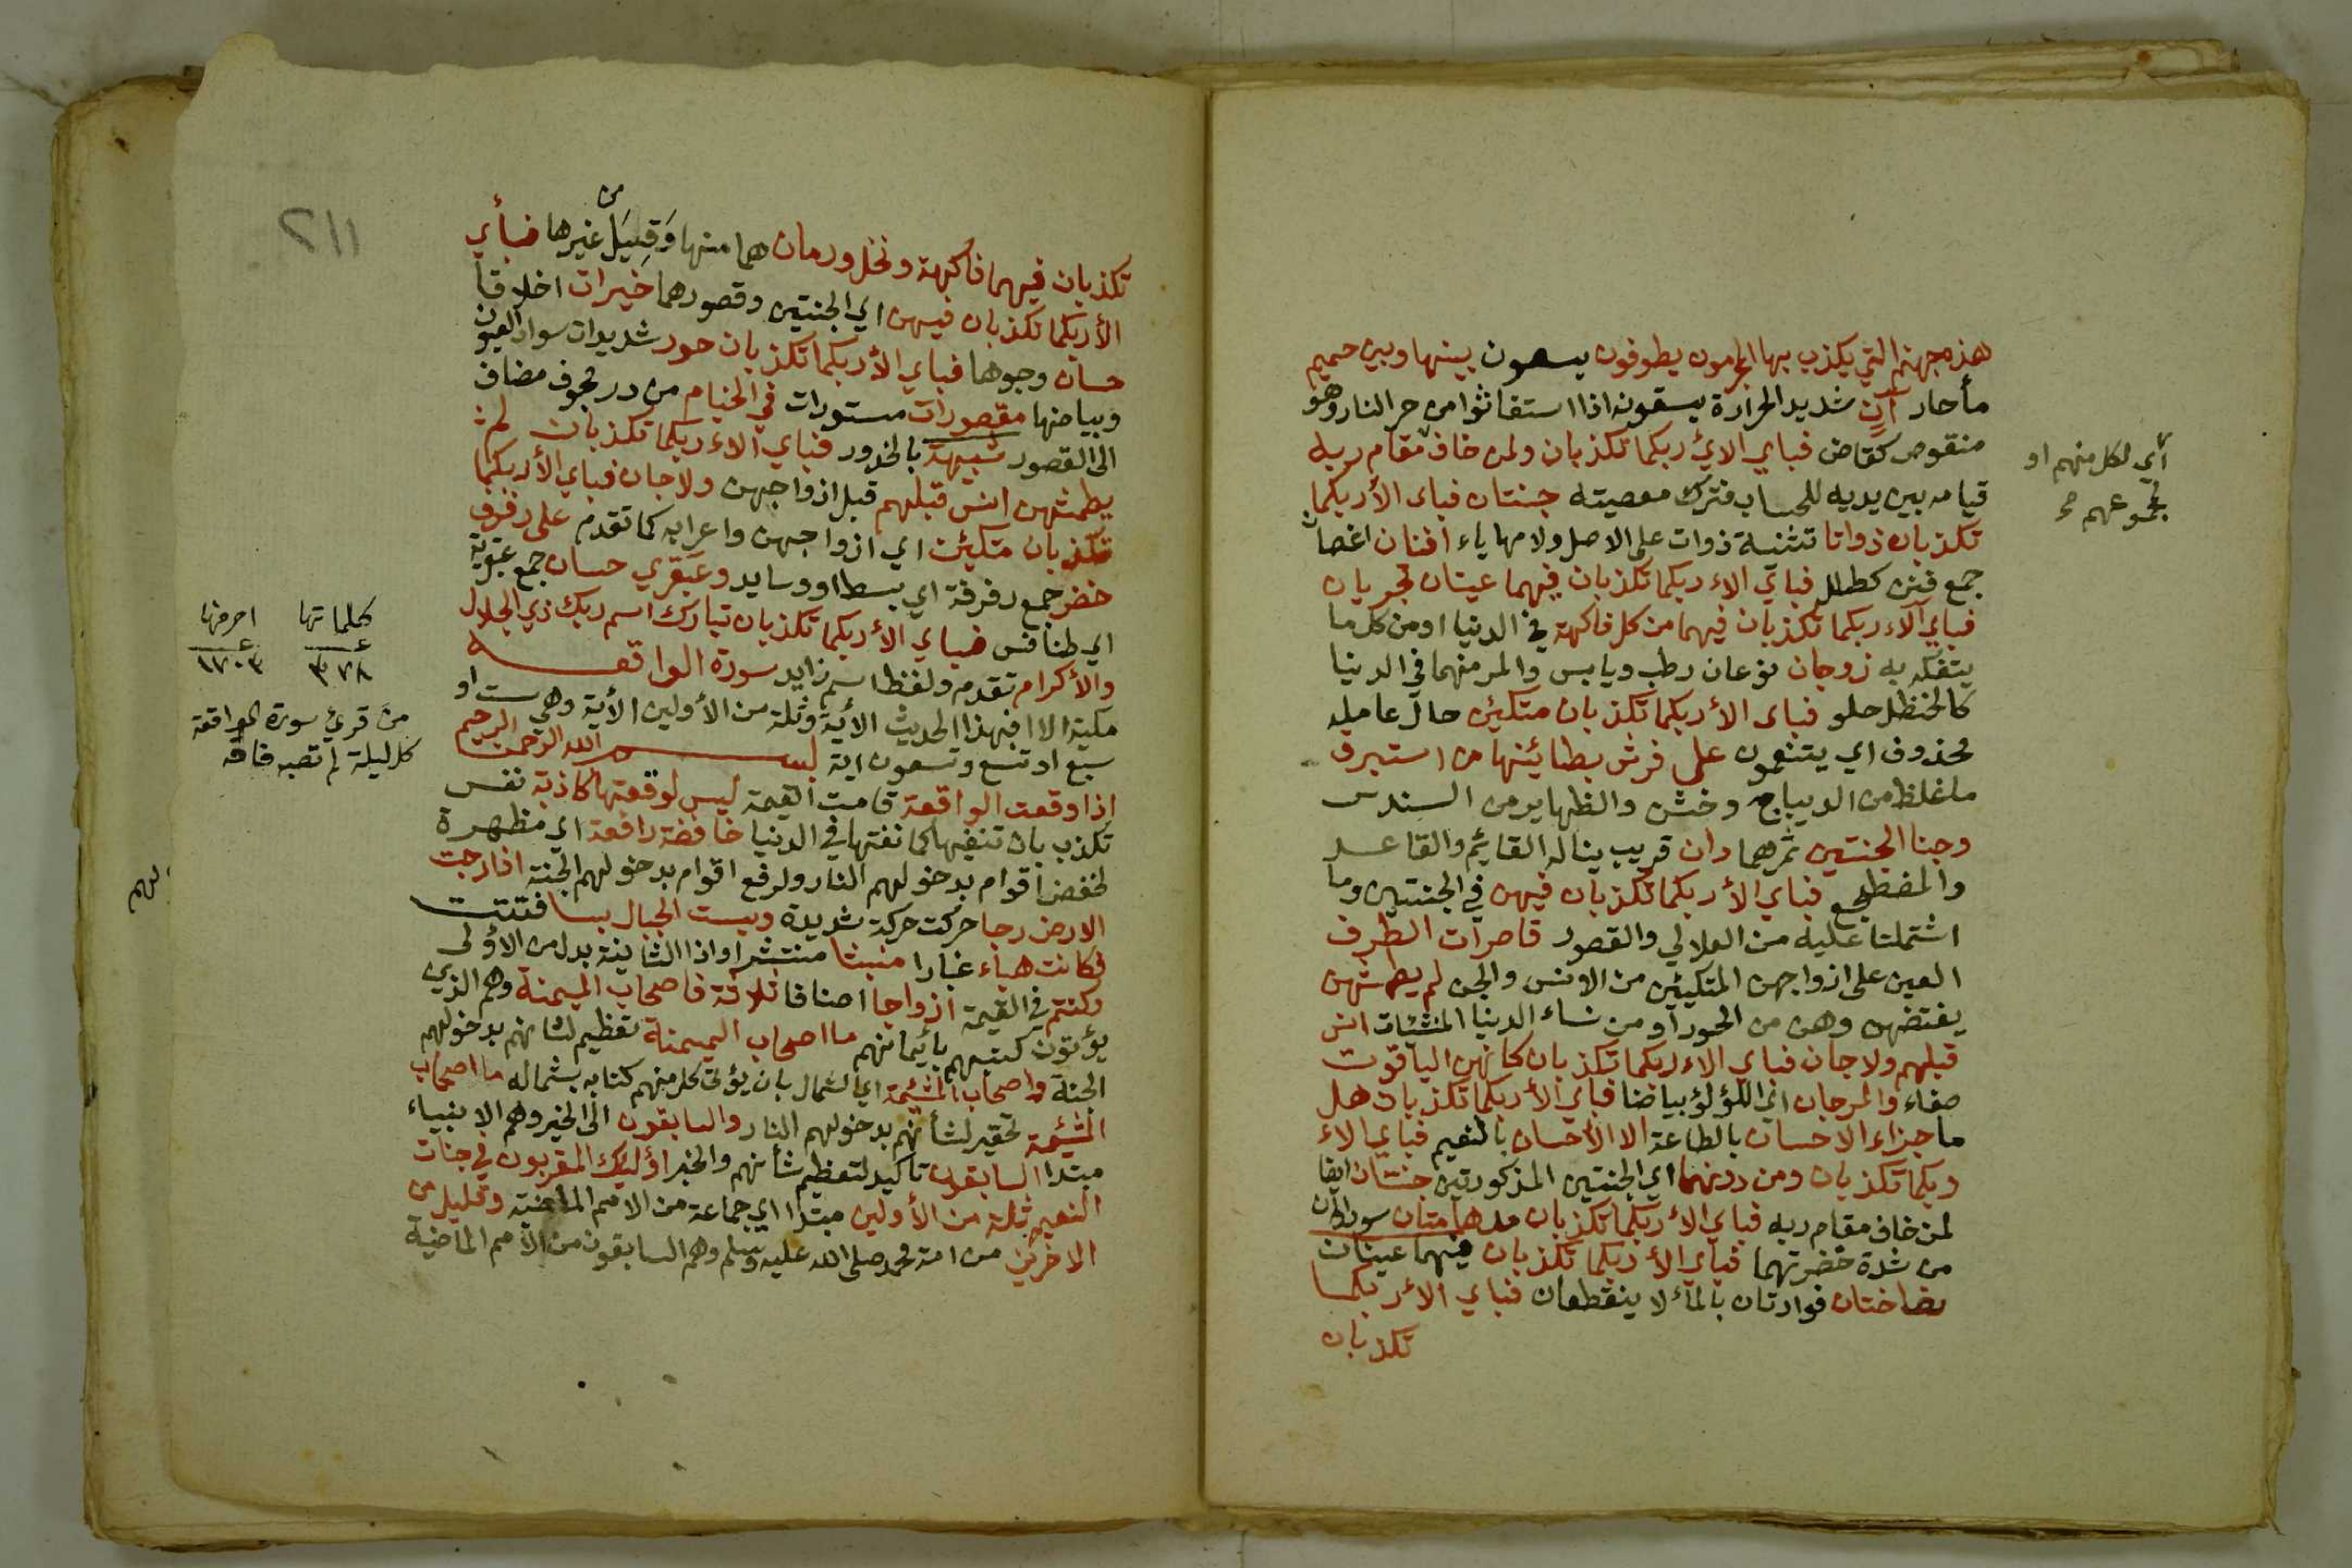 هذه جهنم التي يكذب بها المجرمون يطوفون يسعون بينها وبين حميم
مأ حار آنٍ شديد الحرارة يسقونه اذا استغاثوا من حر النار وهو
منقوص كقاض فباي الاي ربكما تكذبان ولمن خاف مقام ربه
قيامه بين يديه للحساب فترك معصيته جنتان فباى الأ ربكما
تكذبان ذواتا تثنية ذوات على الاصل ولامها ياء افنان اغصان
جمع فنن كطلل فباي الاء ربكما تكذبان فيهما عينان تجريان
فباي آلاء ربكما تكذبان فيهما من كل فاكهة في الدنيا او من كل ما
يتفكه به زوجان نوعان رطب ويابس والمر منهما في الدنيا
كالحنظل حلو فباى الأ ربكما تكذبان متكئين حال عامله
محذوف اي يتنعمون على فرش بطائنها من استبرق
ما غلظ من الديباج وخشن والظهاير من السندس
وجنا الجنتين ثمرهما دان قريب يناله القايم والقاعد
والمضطجع فباي الأ ربكما تكذبان فيهن في الجنتين وما
اشتملتا عليه من العلالي والقصور قاصرات الطرف
العين على ازواجهن المتكيين من الانس والجن لم يطمثهن
يفتضهن وهن من الحور او من نساء الدنيا المنشئات انس
قبلهم ولا جان فباي الاء ربكما تكذبان كانهن الياقوت
صفاء والمرجان اي اللؤلؤ بياضا فباي الأ ربكما تكذبان هل
ما جزاء الاحسان بالطاعة الا الاحسان بالنعيم فباي الاء
ربكما تكذبان ومن دونهما اي الجنتين المذكورتين جنتان ايضا
لمن خاف مقام ربه فباي الأ ربكما تكذبان مدهامتان سوداوان
من شدة خضرتهما فباي الأ ربكما تكذبان فيهما عينان
نضاختان فوارتان بالمأ لا ينقطعان فباي الاء ربكما
تكذبان
اي لكل منهم او
لمجموعهم
٢١١
من
تكذبان فيهما فاكهة ونخل ورمان هما منها وَقِيَل غيرها فبأي
الأ ربكما تكذبان فيهن اي الجنتين وقصورهما خيرات اخلاقا
حسان وجوها فباي الأ ربكما تكذبان حور شديدات سواد العيون
وبياضها مقصورات مستورات في الخيام من در مجوف مضاف
الى القصور شبيهة بالخدور فباي الاء ربكما تكذبان لم
يطمثهن انس قبلهم قبل ازواجهن ولا جان فباي الأ ربكما
تكذبان متكئين اي ازواجهن واعرابه كما تقدم على رفرف
خضر جمع رفرفة اي بسط او وسايد وعبقري حسان جمع عبقرية
اي طنافس فباي الأ ربكما تكذبان تبارك اسم ربك ذي الجلال
والأكرام تقدم ولفظ اسم زايد سورة الواقعه
مكية الا افبهذا الحديث الأية وثلة من الأولين الأية وهي ست او
سبع او تسع وتسعون اية بسم الله الرحمن الرحيم
اذا وقعت الواقعة قامت القيمة ليس لوقعتها كاذبة نفس
تكذب بان تنفيها كما نفتها في الدنيا خافضة رافعة اي مظهرة
لخفض اقوام بدخولهم النار ولرفع اقوام بدخولهم الجنة اذا رجت
الارض رجا حركت حركة شديدة وبست الجبال بسا فتتت
فكانت هباء غبارا منبثا منتشرا واذا الثانية بدل من الاؤلى
وكنتم في القيمة ازواجا اصنافا ثلاثة فاصحاب الميمنة وهم الذين
يؤتون كتبهم بأيمانهم ما اصحاب الميمنة تعظيم لشانهم بدخولهم
الجنة واصحاب المشيمة اي الشمال بان يؤتى كل منهم كتابه بشماله ما اصحاب
المشيمة تحقير لشأنهم بدخولهم النار والسابقون الى الخير وهم الانبياء
مبتدا السابقون تأكيد لتعظيم شأنهم والخبر اؤليك المقربون في جنات
النعيم ثلة من الأولين مبتدا اي جماعة من الامم الماضية وقليل من
الاخرين من امة محمد صلى الله عليه وسلم وهم السابقون من الأمم الماضية
كلماتها احرفها
٣٧٨ ١٧٠٣
من قرئ سورة الواقعة
كل ليلة لم تصبه فاقه